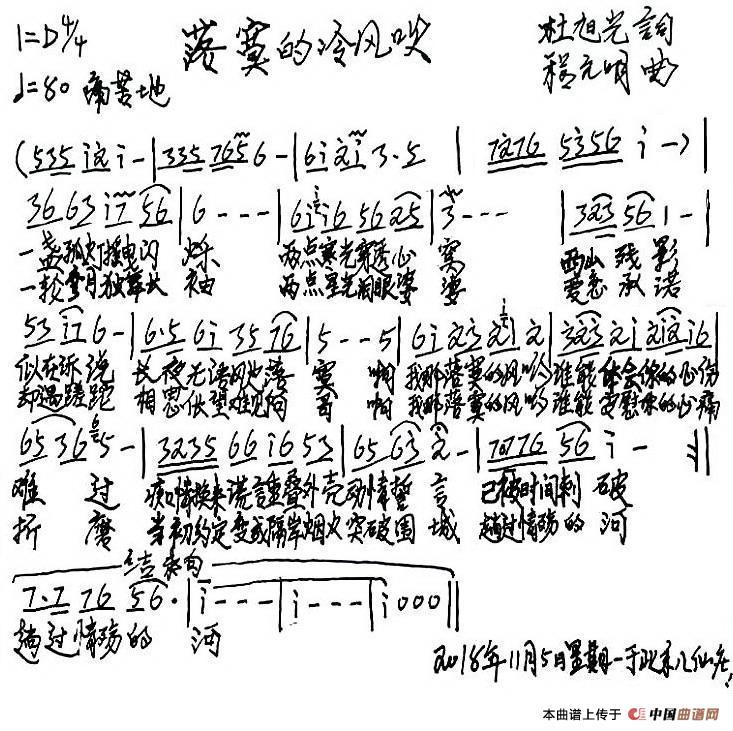 1=D 4/4 落寞的冷风吹 杜旭光 詞
♩=80 痛苦地 程元明 曲
(535 i2 i - | 335 765 6 - | 6i 2i 3·5 | 7276 5356 i - ) |
36 63 i7 56 | 6 - - - | 6i i6 56 25 | 3 - - - | 323 56 1 - |
一盏孤灯 闪 烁 两点寒光穿透心 寞 西山残影
一轮 月独舞长 袖 两点 光 眼婆 婆 爱恋承诺
53 i7 6 - | 6·5 6i 35 76 | 5 - - 5 | 6i 23 2i 2 | 323 2i 2i2 i6 |
似在诉说 长夜无语风吹落 寞 啊 我那落寞的风哟 谁能体会你的心伤
却遇蹉跎 相思伏望难见阿 哥 啊 我那落寞的风哟 谁能安慰你的心痛
65 36 5 - | 3235 66 i6 53 | 65 63 2 - | 7276 56 i - :||
难 过 痴情换来谎言重叠外壳 动情誓 言 已被时间刺 破
折 磨 当初约定变成隔岸烟火 突破围 城 趟过情殇的 河
结束句
7·7 76 56· | i - - - | i - - - | i 0 0 0 ||
趟过情殇的 河
2018年11月5日星期一于北京八仙庄
本曲谱上传于 中国曲谱网